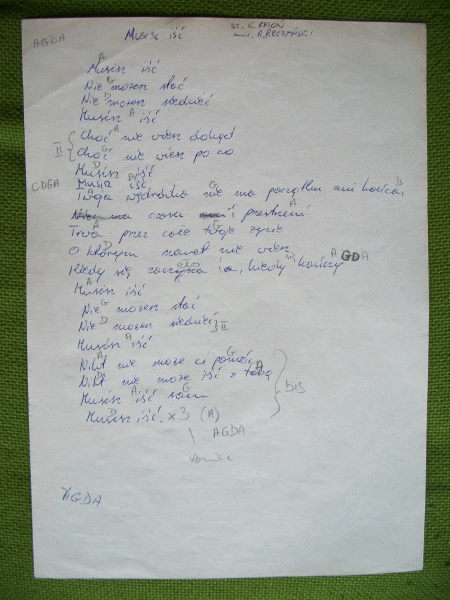 AGDA Musisz iść sł. K. RATOŃ
muz. A.
A
Musisz iść
G
Nie możesz stać
D
Nie możesz siedzieć
A
Musisz iść
A
Choć nie wiesz dokąd
II G
Choć nie wiesz po co
D
Musisz iść
CDGA Musisz iść
A G D
Twoja wędrówka nie ma początku ani końca
A
Nie ma czasu ani przestrzeni
A G
Trwa przez całe twoje życie
D
O którym nawet nie wiesz
A GDA
Kiedy się zaczyna i kiedy kończy
A
Musisz iść
G
Nie możesz stać
D
Nie możesz siedzieć } II
A
Musisz iść
A G
Nikt nie może ci pomóc
D A
Nikt nie może iść z tobą
A G
Musisz iść sam bis
D
Musisz iść. x3 (A)
AGDA
koniec
AGDA